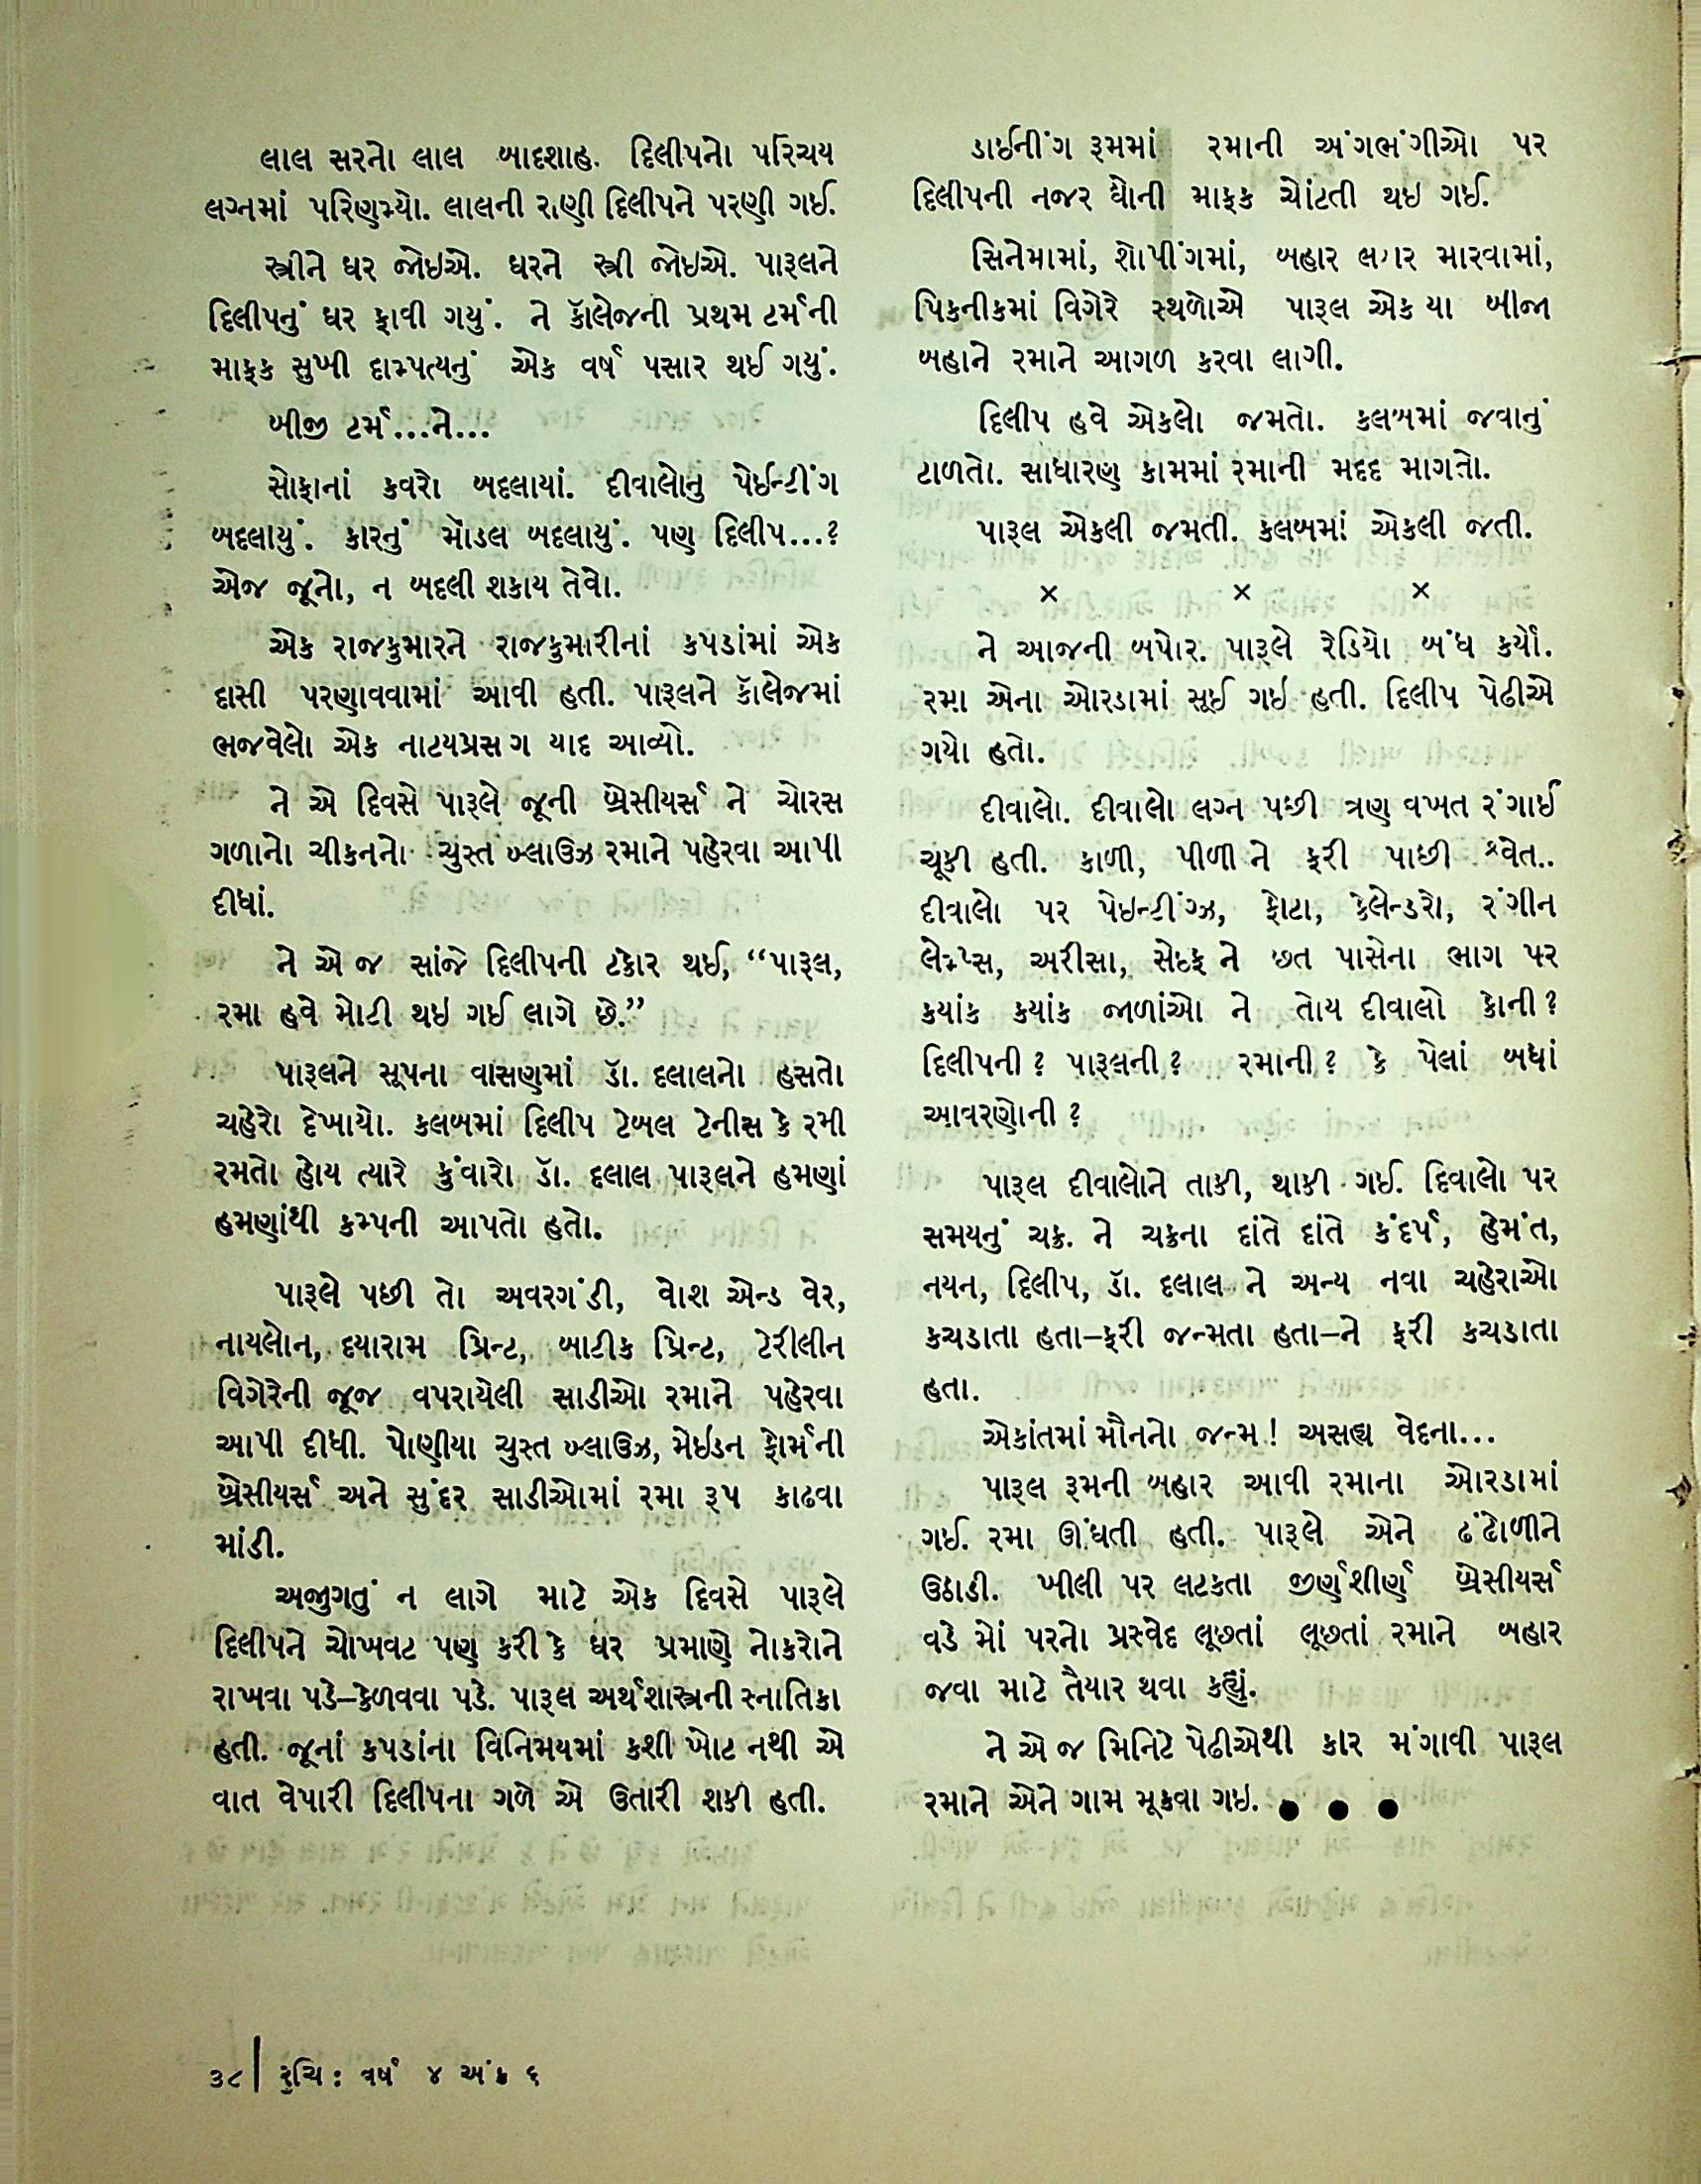 લાલ સરનો લાલ બાદશાહ. દિલીપનો પરિચય
લગ્નમાં પરિણમ્યો. લાલની રાણી દિલીપને પરણી ગઈ.
સ્ત્રીને ઘર જોઇએ. ઘરને સ્ત્રી જોઇએ. પારૂલને
દિલીપનું ઘર ફાવી ગયું. ને કૉલેજની પ્રથમ ટર્મની
માફક સુખી દામ્પત્યનું એક વર્ષ પસાર થઈ ગયું.
બીજી ટર્મ...ને...
સોફાનાં કવરો બદલાયાં. દીવાલોનુ પેઈન્ટીંગ
બદલાયું. કારનું મૉડલ બદલાયું. પણ દિલીપ...?
એજ જૂનો, ન બદલી શકાય તેવો.
એક રાજકુમારને રાજકુમારીનાં કપડાંમાં એક
દાસી પરણાવવામાં આવી હતી. પારૂલને કૉલેજમાં
ભજવેલો એક નાટયપ્રસગ યાદ આવ્યો.
ને એ દિવસે પારૂલે જૂની બ્રેસીયર્સ ને ચોરસ
ગળાનો ચીકનનો ચુસ્ત બ્લાઉઝ રમાને પહેરવા આપી
દીધાં.
ને એ જ સાંજે દિલીપની ટકોર થઈ, “પારૂલ,
રમા હવે મોટી થઇ ગઈ લાગે છે.”
પારૂલને સૂપના વાસણમાં ડૉ. દલાલનો હસતો
ચહેરો દેખાયો. કલબમાં દિલીપ ટેબલ ટેનીસ કે રમી
રમતો હોય ત્યારે કુંવારો ડૉ. દલાલ પારૂલને હમણાં
હમણાંથી કમ્પની આપતો હતો.
પારૂલે પછી તો અવરગંડી, વોશ એન્ડ વેર,
નાયલોન, દયારામ પ્રિન્ટ, બાટીક પ્રિન્ટ, ટેરીલીન
વિગેરેની જૂજ વપરાયેલી સાડીઓ રમાને પહેરવા
આપી દીધી. પોણીયા ચુસ્ત બ્લાઉઝ, મેઇડન ફોર્મની
બ્રેસીયર્સ અને સુંદર સાડીઓમાં રમા રૂપ કાઢવા
માંડી.
અજુગતું ન લાગે માટે એક દિવસે પારૂલે
દિલીપને ચોખવટ પણ કરી કે ઘર પ્રમાણે નોકરોને
રાખવા પડે–કેળવવા પડે. પારૂલ અર્થશાસ્ત્રની સ્નાતિકા
હતી. જૂનાં કપડાંના વિનિમયમાં કશી ખોટ નથી એ
વાત વેપારી દિલીપના ગળે એ ઉતારી શકી હતી.
ડાઈનીંગ રૂમમાં રમાની અંગભંગીઓ પર
દિલીપની નજર ઘોની માફક ચોંટતી થઇ ગઈ.
સિનેમામાં, શોપીંગમાં, બહાર લગાર મારવામાં,
પિકનીકમાં વિગેરે સ્થળોએ પારૂલ એક યા બીજા
બહાને રમાને આગળ કરવા લાગી.
દિલીપ હવે એકલો જમતો. કલબમાં જવાનું
ટાળતો. સાધારણ કામમાં રમાની મદદ માગતો.
પારૂલ એકલી જમતી. કલબમાં એકલી જતી.
× × ×
ને આજની બપોર. પારૂલે રેડિયો બંધ કર્યો.
રમા એના ઓરડામાં સૂઈ ગઇ હતી. દિલીપ પેઢીએ
ગયો હતો.
દીવાલો. દીવાલો લગ્ન પછી ત્રણ વખત રંગાઈ
ચૂકી હતી. કાળી, પીળી ને ફરી પાછી શ્વેત..
દીવાલો પર પેઇન્ટીંગ્ઝ, ફોટા, કેલેન્ડરો, રંગીન
લેમ્પ્સ, અરીસા, સેઇફ ને છત પાસેના ભાગ પર
કયાંક કયાંક જાળાંઓ ને તોય દીવાલો કોની?
દિલીપની? પારૂલની? રમાની? કે પેલાં બધાં
આવરણોની?
પારૂલ દીવાલોને તાકી, થાકી ગઈ. દિવાલો પર
સમયનું ચક્ર. ને ચક્રના દાંતે દાંતે કંદર્પ, હેમંત,
નયન, દિલીપ, ડૉ. દલાલ ને અન્ય નવા ચહેરાઓ
કચડાતા હતા–ફરી જન્મતા હતા–ને ફરી કચડાતા
હતા.
એકાંતમાં મૌનનો જન્મ! અસહ્ય વેદના...
પારૂલ રૂમની બહાર આવી રમાના ઓરડામાં
ગઈ. રમા ઊંઘતી હતી. પારૂલે એને ઢંઢોળીને
ઉઠાડી. ખીલી પર લટકતા જીર્ણશીર્ણ બ્રેસીયર્સ
વડે મોં પરનો પ્રસ્વેદ લૂછતાં લૂછતાં રમાને બહાર
જવા માટે તૈયાર થવા કહ્યું.
ને એ જ મિનિટે પેઢીએથી કાર મંગાવી પારૂલ
રમાને એને ગામ મૂકવા ગઇ. ● ● ●
૩૮ | રુચિ : વર્ષ ૪ અંક ૬